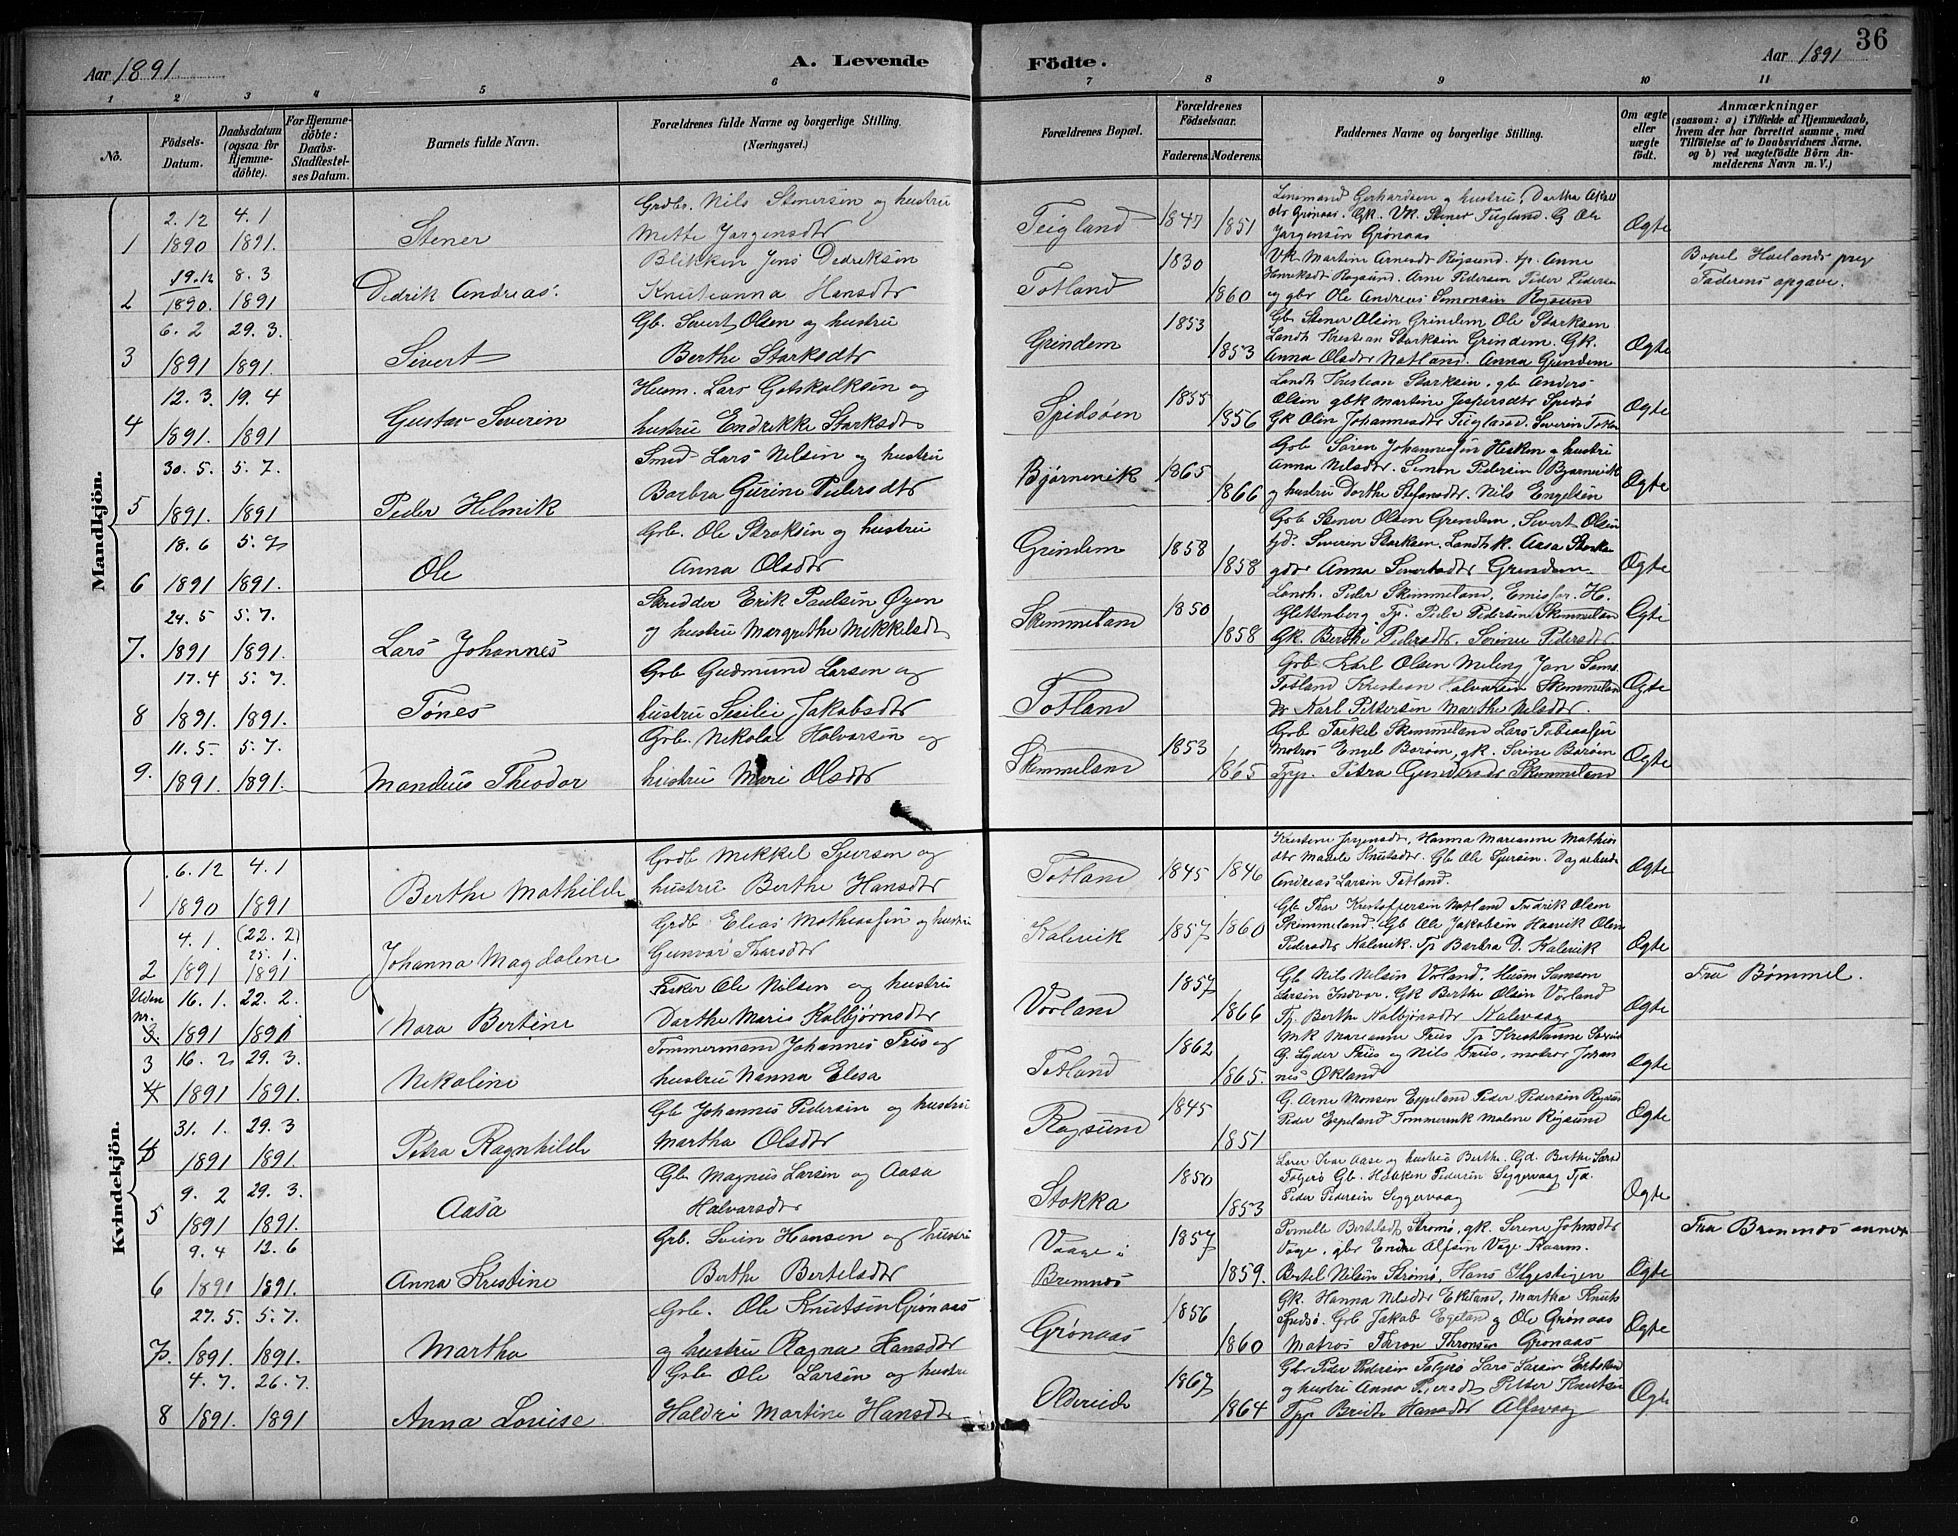 36
Aar 1891.
A. Levende
Födte.
Aar 1891
1 2 3 4 5 6 7 8 9 10 11
No.
Födsels-
Datum.
Daabsdatum
(ogsaa for
Hjemme-
döbte).
For Hjemme-
döbte:
Daabs-
Stadfæstel-
ses Datum.
Barnets fulde Navn.
Forældrenes fulde Navne og borgerlige Stilling.
(Næringsvei.)
Forældrenes Bopæl.
Forældrenes
Födselsaar.
Faderens. Moderens.
Faddernes Navne og borgerlige Stilling.
Om ægte
eller
uægte
født.
Anmærkninger
(saasom: a) i Tilfælde af Hjemmedaab,
hvem der har forrettet samme, med
Tilföielse af to Daabsvidners Navne,
og b) ved uægtefödte Börn An-
melderens Navn m. V.)
Mandkjön.
1
2.12
1890
4.1
1891.
Stener
Grdbr. Nils Stenersen og hustru
Mette Jørgensdtr
Teigland
1847 1851
Jørgensen Grönaas
Ægte
2
19.12
1890.
8.3
1891
Dedrik Andreas.
Blikken Jens Dedriksen
Knuteanna Hansdtr
Totland
1830
1860
og gbr Ole Andreas Simonsen Røgsund
Faderens opgave.
3
6.2
1891
29.3.
1891.
Sivert
Gb. Severt Olsen og hustru
Berthe Starksdtr
Grindem
1853
1853
Gb. Stener Olsen Grindem Ole Starksen
Landh Krestian Starksen Grindem. Gk.
Anna Olsdtr Notland. Anna Grindem
Ægte
4
12.3.
1891.
19.4
1891
Gustav Severin
Husm. Lars Gotskalksen og
hustru Endrekke Starksdtr
Spidsøen
1855
1856
Landh Kristian Starksen. gb Anders
Olsen gbk Martine Jespersdtr Spidsö
Gk Olin Johannesdtr Teigland. Severin
Ægte
5
30.5.
1891.
5.7.
1891
Peder Helmik
Smed Lars Nilsen og hustru
Barbra Gurine Pedersdtr
Bjørnevik
1865
1866
Grb Søren Johannessen Hisken og hustru
Anna Nilsdtr. Simon Pedersen Bjørnevik
og hustru Dorthe Stefansdtr. Nils Engelsen
Ægte
6
18.6
1891
5.7
1891.
Ole
Grb. Ole Storksen og hustru
Anna Olsdtr
Grindem
1858
1858
Grb Stener Olsen Grindem, Severt Olsen
Anna Severtsdtr Grindem
Ægte
7.
24.5
1891
5.7.
1891.
Lars Johannes
Skrædder Erik Paulsen Øyen
og hustru Margrethe Mikkelsdtr
Skimmeland
1850
1858
Landh. Peder Skimmeland, Emissær H.
Glettenberg Tp. Peder Pedersen Skimmeland
Gk. Berthe Pedersdtr. Sørine Pedersdtr
Ægte
8
17.4
1891.
5.7.
1891.
Tønes
Grb Gudmund Larsen og
hustru Sesilie Jakobsdtr
Totland
Grb Karl Olsen Meling Jan Sams.
Totland Kristian Halvorsen Skimmeland
Karl Pettersen Marthe Nilsdtr.
Ægte
9.
11.5.
1891.
5.7.
1891.
Mandius Theodor
Grb. Nikolai Halvorsen og
hustru Mari Olsdtr
Skimmeland
1853
1865
Grb Torkel Skimmeland Lars Tobiassen
Matros Engel Barøen, gk. Serine Barøen
Petra Gundersdtr Skimmeland
Ægte
Kvindekjön.
1
6.12
1890
4.1
1891
Berthe Mathilde
Grdb Mekkel Sjursen og
hustru Berthe Hansdtr
Totland
1845 1846
Kristine Jørgensdtr, Hanna Marianne Mathias
dtr Marele Knutsdtr. Gb Ole Sjursen. Dagarbeider
Andreas Larsen Totland.
Ægte
2
4.1.
1891
(22.2)
25.1.
1891
Johanna Magdalene
Grdb Elias Mathiassen og hustru
Gunvor Thorsdtr
Kalevik
1857 1860
Gb Thor Kristoffersen Notland Fredrik Olsen
Skimmeland. Gb Ole Jakobsen Haavik Olen
Pedersdtr Kalevik. Tp Berbra D. Kalevik
Ægte
Uden
nr.
3.
16.1.
1891
22.2.
1891
Nora Bertine
Fisker Ole Nilsen og hustru
Dorthe Marie Kolbjørnsdtr
Vorland
1857
1866
Gb Nils Nilsen Vorland, Husm Samson
Larsen Indvær. Gk Berthe Olsen Vorland
Tp. Berthe Kolbjønsdtr Kalevaag
Ægte
Fra Bømmel.
3
4
16.2
1891
29.3.
1891.
Nikoline
Tømmermand Johannes Friis og
hustru Nanna Elesa
Totland
1862
1865.
G. Lyder Friis og Nils Friis, matros Johan
nes Økland
Ægte
4
31.1.
1891
29.3
1891.
Petra Ragnhilde
Gb Johannes Pedersen og hustru
Martha Olsdtr
Røgsund
1845
1851
G. Arne Monsen Espeland Peder Pedersen Røgsun
Peder Espeland Tømmermk Malene Røgsund
Ægte
5
9.2
1891
29.3.
1891.
Aasa
Gb Magnus Larsen og Aasa
Halvorsdtr
Stokka
1850
1853
Lærer Ivar Aase og hustru Berthe. Gd. Berthe Lars
Folgerø Gb. Haakon Pedersen Siggervaag Tjd.
Peder Pedersen Siggervaag
Ægte
6
9.4
1891
12.6
1891.
Anna Kristine
Grb. Seien Hansen og hustru
Berthe Bertelsdtr
Vaage i
Bremnes
1857
1859.
Pernille Bertelsdtr Strømø, gk. Serene Johnsdtr
Vage, gbr Endre Alfsen Vage Kaarm.
Bertel Nilsen Strømø, Hans
Ægte
Fra Bremnes annex
7.
27.5.
1891.
5.7.
1891.
Martha
Grb. Ole Knutsen Grønaas
og hustru Ragna Hansdtr
Grønaas
1856
1860
Gk. Hanna Nilsdtr Ekeland, Martha Knuts
Spidsø. Grb Jakob Egeland og Ole Grønaas
Matros Thron Thronsen Grønaas
Ægte
8
4.7.
1891.
26.7.
1891
Anna Louise
Grb. Ole Larsen og hustru
Haldri Martine Hansdtr
1867
1864
Gbr Peder Pedersen Folgerø Lars Larsen
og hustru Anna Petter Knutsen
Tpp Brite Hansdtr Alfsvaag
Ægte